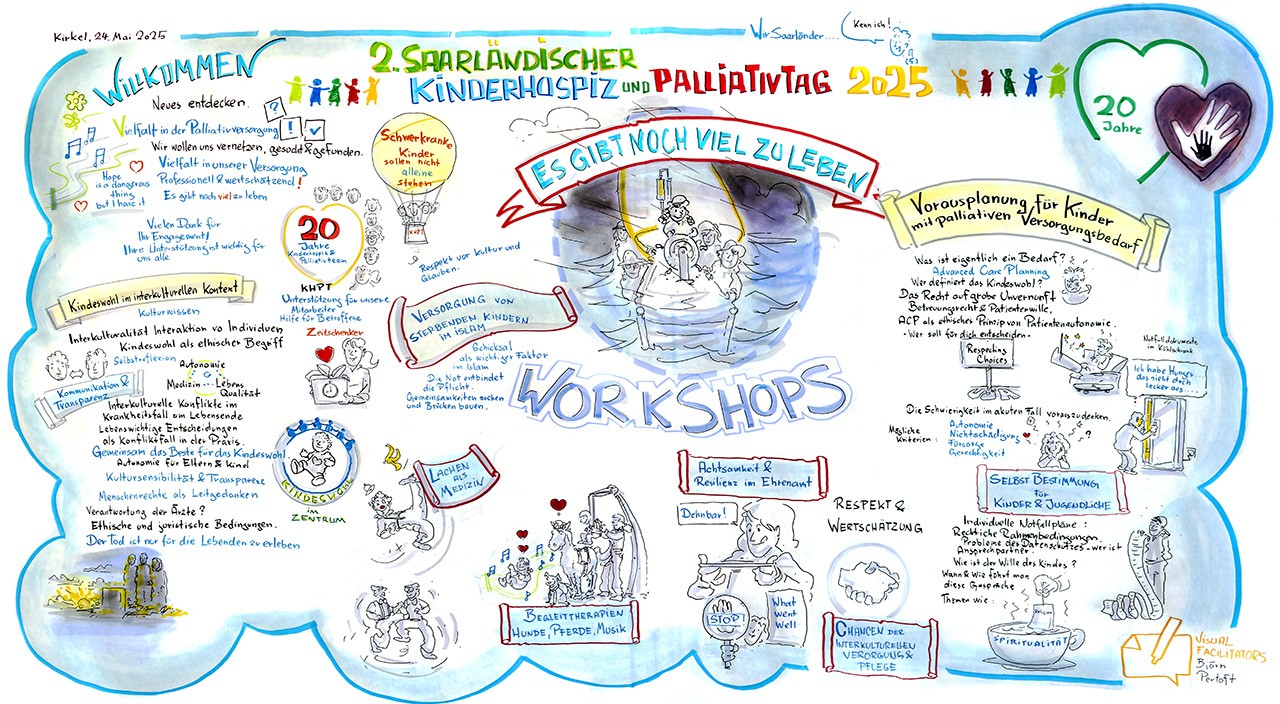 Kirkel, 24. Mai 2025
Wir Saarländer....
Kenn ich!
WILLKOMMEN
2. SAARLÄNDISCHER
KINDERHOSPIZ UND PALLIATIVTAG 2025
20
Jahre
Neues entdecken.
Vielfalt in der Palliativversorgung
Wir wollen uns vernetzen, gesucht & gefunden.
Vielfalt in unserer Versorgung
Professionell & wertschätzend!
Es gibt noch viel zu leben
Hope
is a dangerous
thing
but I have it
Vielen Dank für
Ihr Engagement!
Ihre Unterstützung ist wichtig für
uns alle
Schwerkranke
Kinder
sollen nicht
alleine
stehen
20
Jahre
Kinderhospiz &
Palliativteam
KHPT
Unterstützung für unsere
Mitarbeiter
Hilfe für Betroffene
Zeitschenker
Kindeswohl im interkulturellen Kontext
Kulturwissen
Interkulturalität Interaktion vo Individuen
Kindeswohl als ethischer Begriff
Selbstreflexion
Kommunikation &
Transparenz
Autonomie
Medizin --- Lebens
Qualität
Interkulturelle Konflikte im
Krankheitsfall am Lebensende
Lebenswichtige Entscheidungen
als Konfliktfall in der Praxis.
Gemeinsam das Beste für das Kindeswohl
Autonomie für Eltern & Kind
Kultursensibilität & Transparenz
Menschenrechte als Leitgedanken
Verantwortung der Ärzte?
Ethische und juristische Bedingungen.
Der Tod ist nur für die Lebenden zu erleben
KINDESWOHL
im
ZENTRUM
ES GIBT NOCH VIEL ZU LEBEN
WORKSHOPS
Respekt vor Kultur und
Glauben.
VERSORGUNG VON
STERBENDEN KINDERN
IM ISLAM
Schicksal
als wichtiger Faktor
im Islam
Die Not entbindet
die Pflicht.
Gemeinsamkeiten suchen
und Brücken bauen.
LACHEN
ALS
MEDIZIN
BEGLEITTHERAPIEN
HUNDE, PFERDE, MUSIK
Achtsamkeit &
Resilienz im Ehrenamt
Dehnbar!
STOP!
What
went
Well
RESPEKT &
WERTSCHÄTZUNG
CHANCEN DER
INTERKULTURELLEN
VERORGUNG &
PFLEGE
Vorausplanung für Kinder
mit palliativen Versorgungsbedarf
Was ist eigentlich ein Bedarf?
Advanced Care Planning
Wer definiert das Kindeswohl?
Das Recht auf grobe Unvernunft
Betreuungsrecht & Patientenwille,
ACP als ethisches Prinzip von Patientenautonomie.
Wer soll für dich entscheiden.
Respecting
Choices
Notfalldokumente
im Kühlschrank
Ich habe Hunger
das sieht doch
lecker aus...
Die Schwierigkeit im akuten Fall vorauszudenken.
Mögliche
Kriterien:
Autonomie
Nichtschädigung
Fürsorge
Gerechtigkeit
SELBST BESTIMMUNG
für
KINDER & JUGENDLICHE
Individuelle Notfallpläne:
Rechtliche Rahmenbedingungen.
Probleme des Datenschutzes - wer ist
Ansprechpartner.
Wie ist der Wille des Kindes?
Wann & Wie führt man
diese Gespräche
Themen wie:
SPIRITUALITÄT
VISUAL
FACILITATORS
Björn
Pertoft